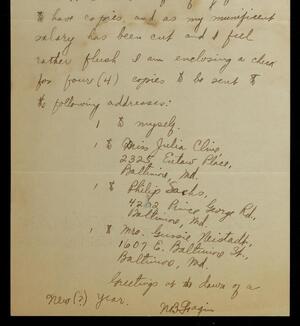 to have copies, and as my munificent
salary has been cut and I feel
rather flush I am enclosing a check
for foure (4) copies to be sent to
the following addresses:
1 to myself.
1 to Miss Julia Cline
2325 Eutaw Place,
Baltimore, Md.
1 to Philip Sachs,
4202 Prince George Rd,
Baltimore, Md.
1 to Mrs. Gussie Neistadt,
1607 E. Baltimore St.,
Baltimore, Md.
Greetings at the dawn of a
New (?) Year.
N.B. Fagin